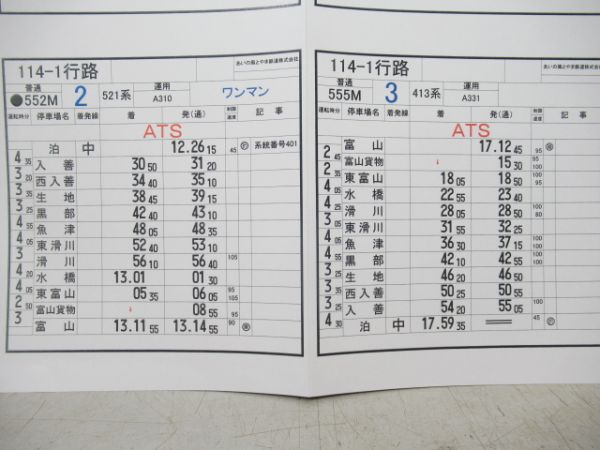 114-1行路
あいの風とやま鉄道株式会社
普通
●552M
2
521系
運用
A310
ワンマン
運転時分 停車場名 着発線 着 発(通) 制限速度 記事
ATS
泊 中 12.26 15 45 系統番号401
4 35 入善 30 50 31 20
3 20 西入善 34 40 35 10
3 35 生地 38 45 39 15
3 25 黒部 42 40 43 10
4 55 魚津 48 05 48 35
4 05 東滑川 52 40 53 10
3 滑川 56 10 56 40 105
4 20 水橋 13.01 01 30
4 05 東富山 05 35 06 05 95 105
2 50 富山貨物 ↓ 08 55 95
3 富山 13.11 55 13.14 55 90
114-1行路
あいの風とやま鉄道株式会社
普通
555M
3
413系
運用
A331
運転時分 停車場名 着発線 着 発(通) 制限速度 記事
ATS
富山 17.12 45 95
2 45 富山貨物 ↓ 15 30 95 100
2 35 東富山 18 05 18 50 95
4 05 水橋 22 55 23 40
4 10 滑川 28 05 28 50 100 80
3 05 東滑川 31 55 32 25
4 05 魚津 36 30 37 15 100
4 55 黒部 42 10 42 55 100 100
3 25 生地 46 20 46 50
3 35 西入善 50 25 50 55
3 25 入善 54 20 55 05 100
4 30 泊 中 17.59 35 45